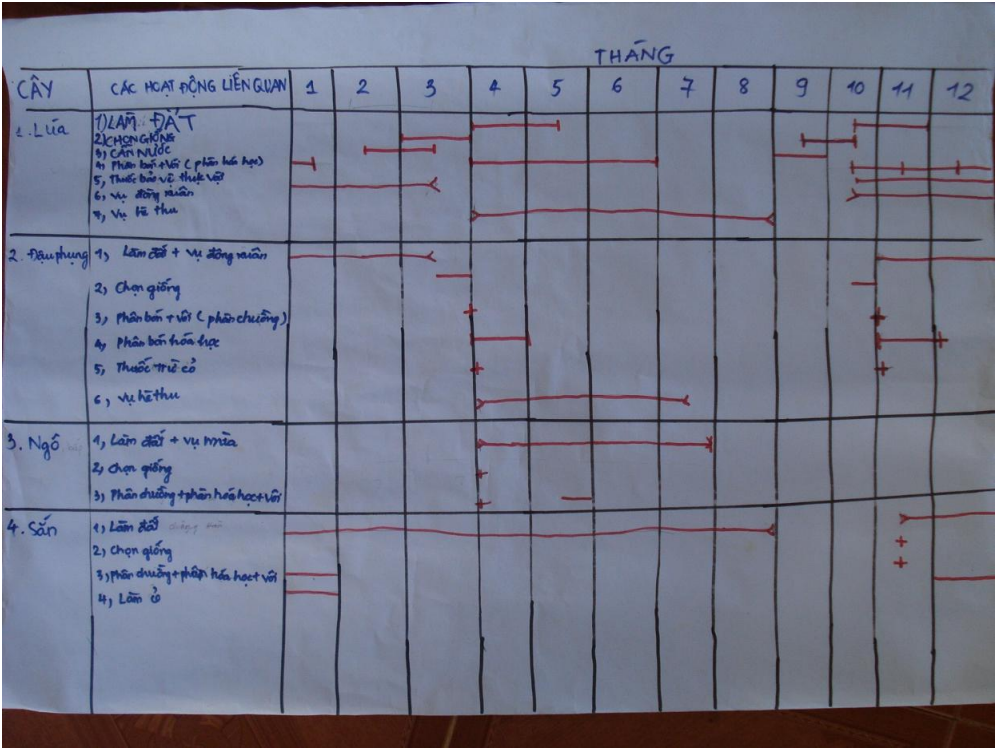 THÁNG
CÂY CÁC HOẠT ĐỘNG LIÊN QUAN 1 2 3 4 5 6 7 8 9 10 11 12
1. Lúa
1) LÀM ĐẤT
2) CHỌN GIỐNG
3) CẦN NƯỚC
4, Phân bón + Vôi (phân hóa học)
5, Thuốc bảo vệ thực vật
6, Vụ đông xuân
7, Vụ hè thu
2. Đậu phụng
1, Làm đất + vụ đông xuân
2, Chọn giống
3, Phân bón + vôi (phân chuồng)
4, Phân bón hóa học
5, Thuốc trừ cỏ
6, Vụ hè thu
3. Ngô
1, Làm đất + vụ mùa
2, Chọn giống
3, Phân chuồng + phân hóa học + vôi
4. Sắn
1, Làm đất
2, Chọn giống
3, phân chuồng + phân hóa học + vôi
4, Làm cỏ